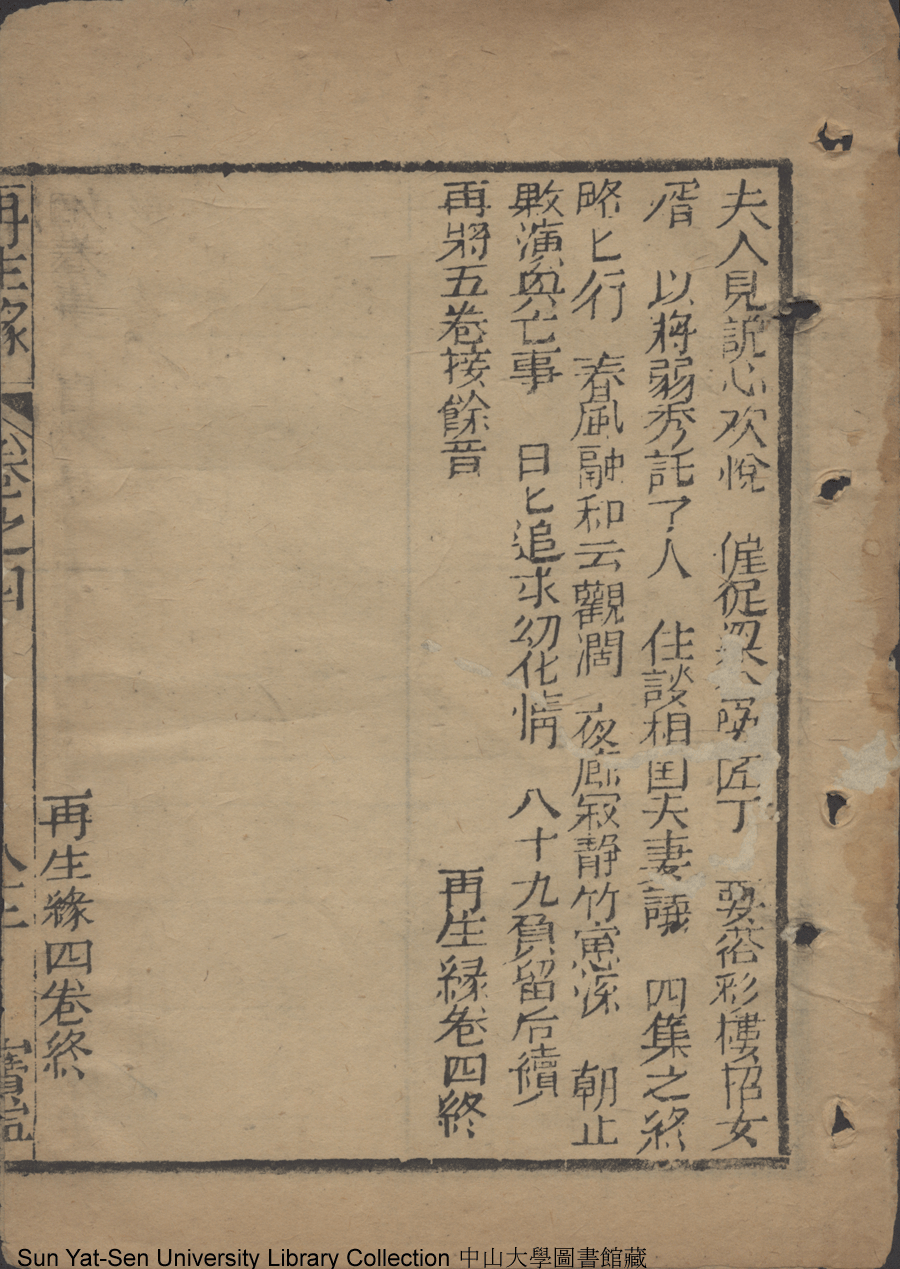 夫人見説心欢悅　僱促梁公呌匠丁　要搭彩樓招女
婿　以将弱秀託了人　住談相囯夫妻議　四集之終
略匕行　春風融和云觀濶　夜廊寂静竹窓深　朝止
敷演興亡事　日匕追求幻化情　八十九負留后續
再將五卷接餘音　再生緑卷四終
再生緣四卷終
再生緣　卷之四
Sun Yat-Sen University Library Collection 中山大學圖書館藏